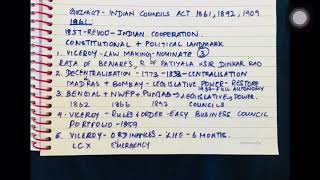 SUBJECT - INDIAN COUNCILS ACT 1861, 1892, 1909
1861
1857 - REVOLT - INDIAN COOPERATION.
CONSTITUTIONAL + POLITICAL LANDMARK
1. VICEROY - LAW MAKING - NOMINATE 3
RAJA OF BENARES, R OF PATIYALA + SIR DINKAR RAO
2. DECENTRALISATION - 1773 - 1833 - CENTRALISATION
MADRAS + BOMBAY - LEGISLATIVE POWER - RESTORE
1937 - FULL AUTONOMY
3. BENGAL + NWFP + PUNJAB → LEGISLATIVE POWER.
1862 1866 1897 COUNCILS
4. VICEROY - RULES + ORDER - EASY BUSINESS COUNCIL
PORTFOLIO - 1859
5. VICEROY - ORDINANCES - LIFE - 6 MONTHS.
LC X EMERGENCY